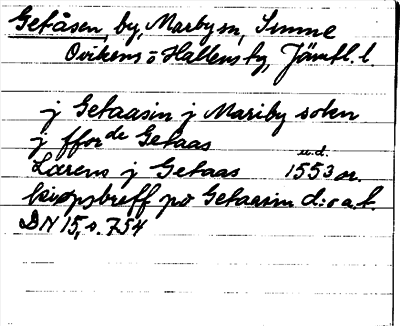 Getåsen, by, Marby sn, Sunne
Ovikens o Hallens tg, Jämtl. l.
j Getaasin j Mariby soken
j fforde Getaas
Lærens j Getaas u.d. 1553 or.
kiøpsbreff po Getaasin d:o a.t.
DN 15, s. 754